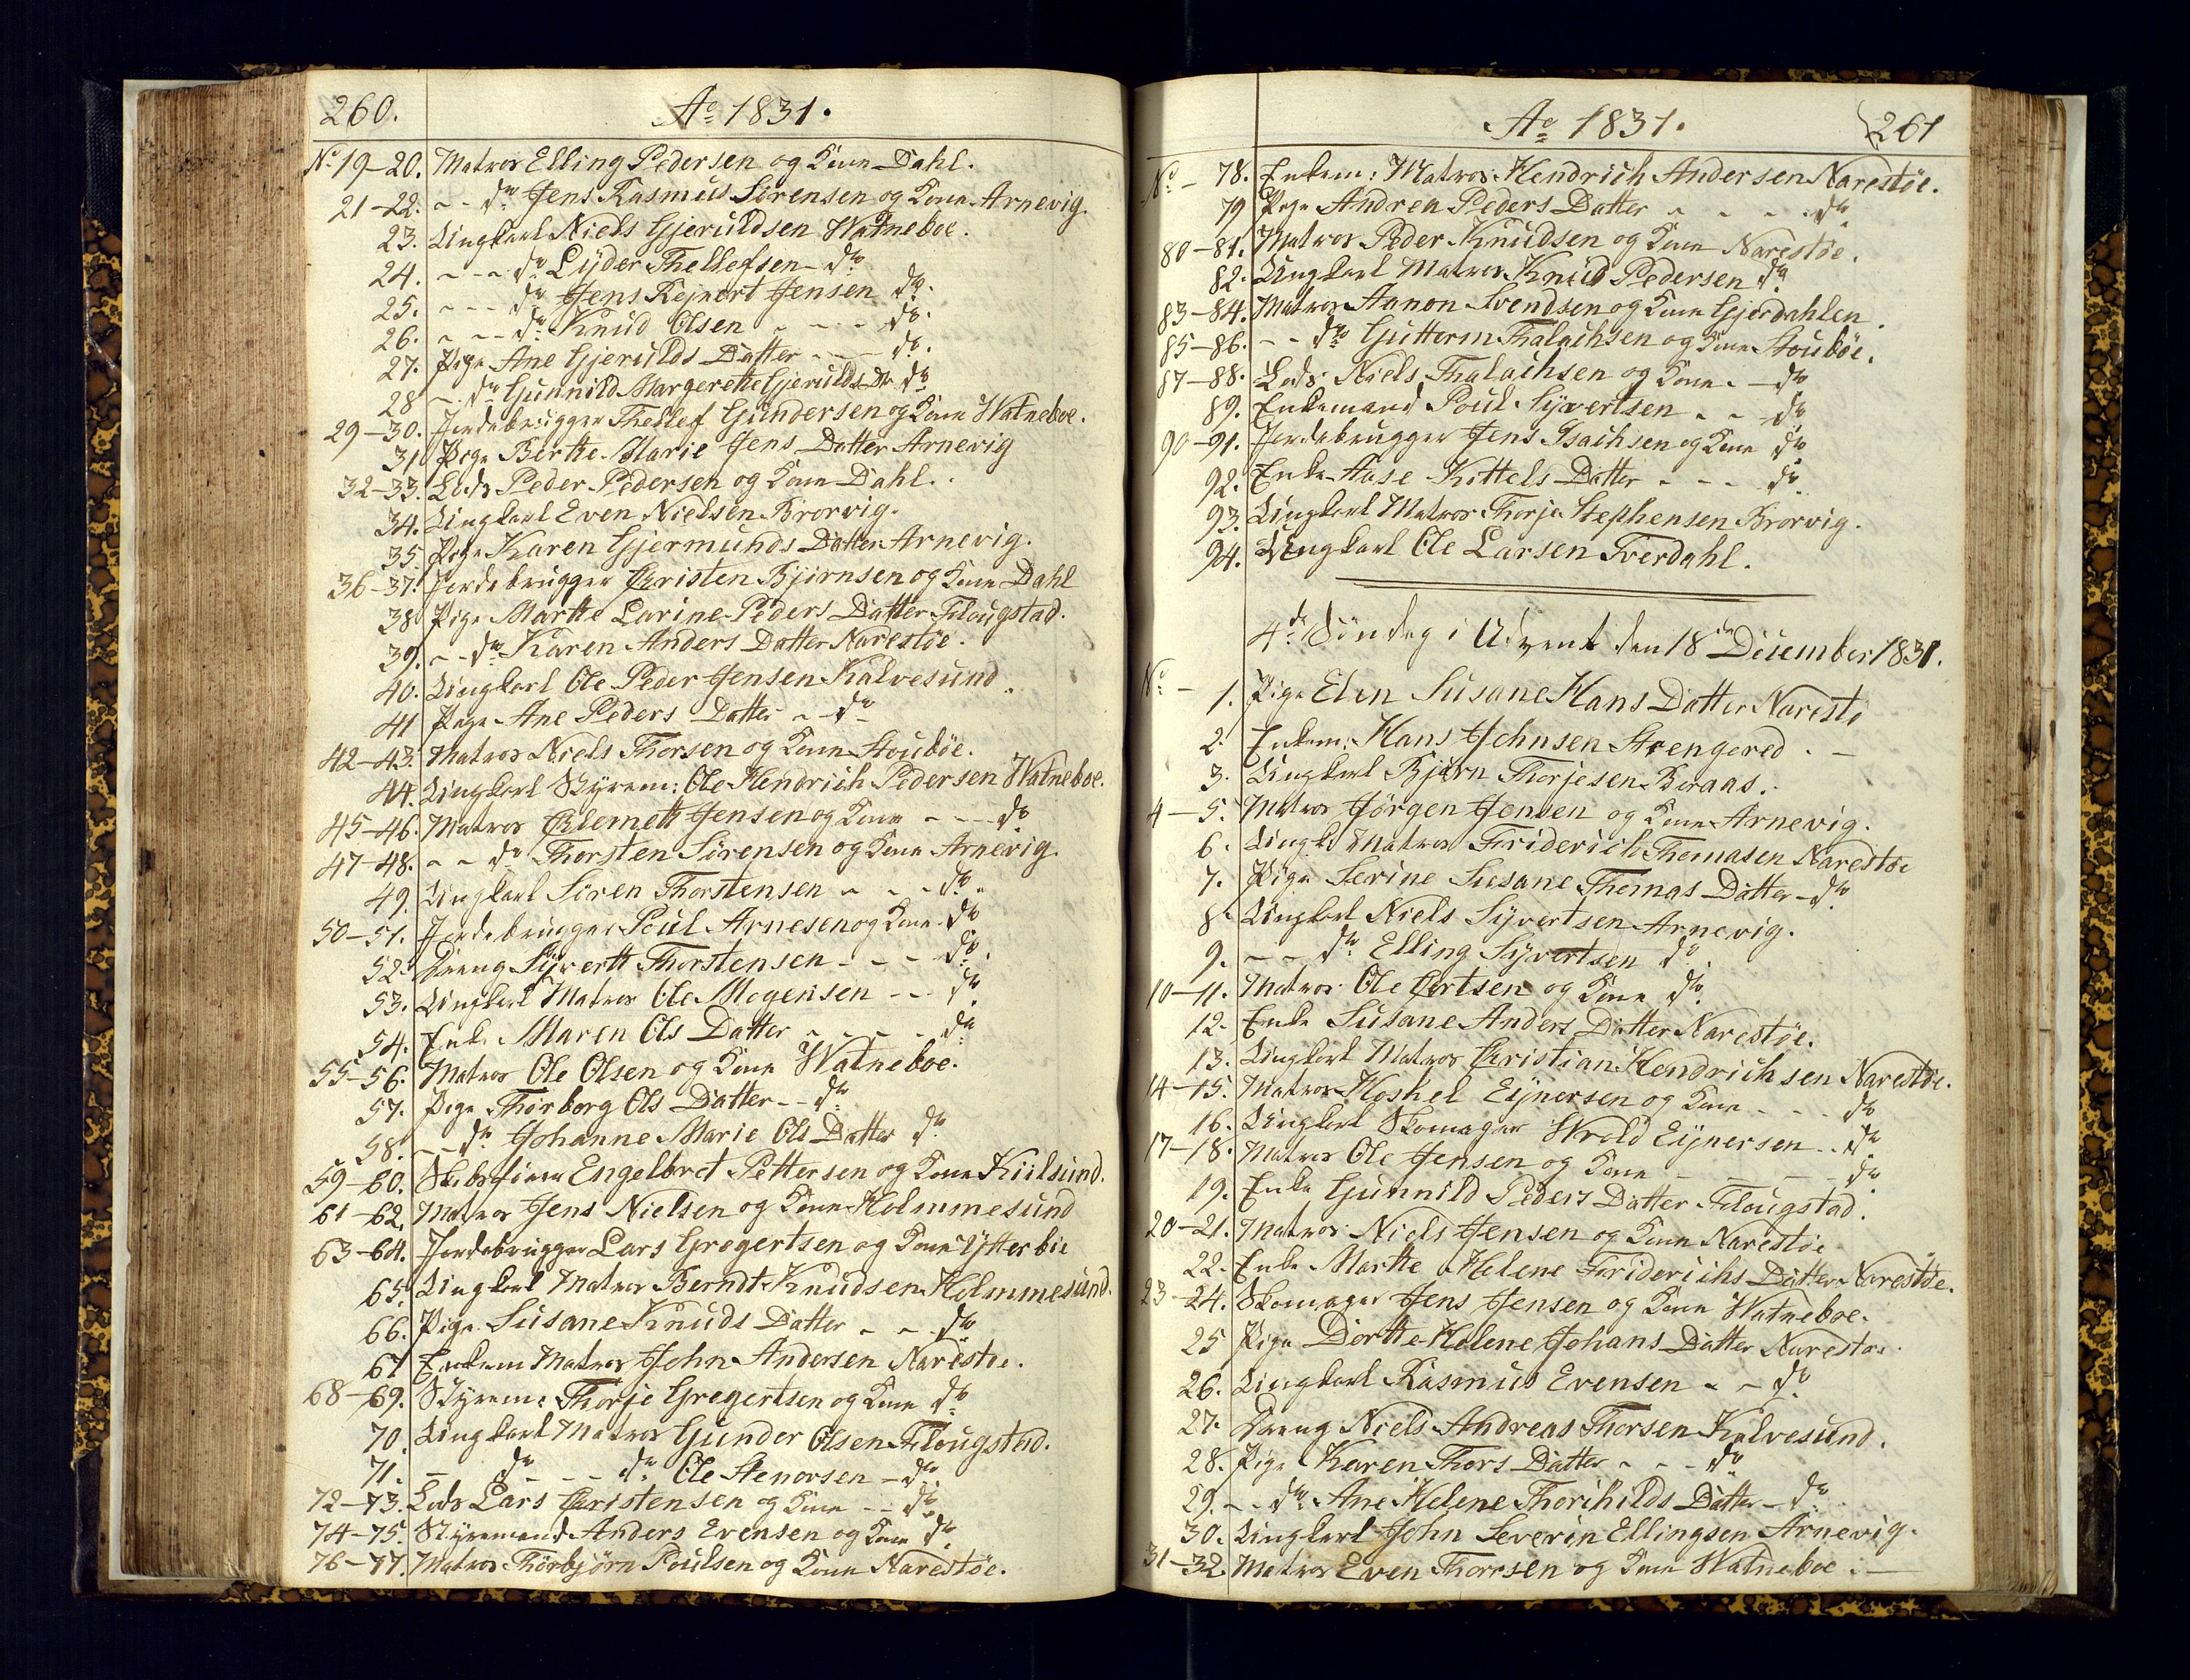 260.
Ao 1831.
No 19-20. Matros Elling Pedersen og Kone Dahl.
21-22. - - do Jens Rasmus Sörensen og Kone Arnevig.
23. Ungkarl Niels Gjeruldsen Watneboe.
24. - - - do Lyder Thellefsen - do
25. - - - do Jens Rejnert Jensen do.
26. - - - do Knud Olsen - - - do.
27. Pige Ane Gjerulds Datter - - - do.
28 - - do Gunnild Margerethe Gjerulds Dr do
29-30. Jordebrugger Thellef Gundersen og Kone Watneboe.
31. Pige Berthe Marie Jens Datter Arnevig
32-33. Lods Peder Pedersen og Kone Dahl.
34. Ungkarl Even Nielsen Brorvig.
35. Pige Karen Gjermunds Datter Arnevig.
36-37. Jordebrugger Christen Björnsen og Kone Dahl
38 Pige Marthe Larine Peders Datter Flougstad.
39. - - do Karen Anders Datter Narestöe.
40. Ungkarl Ole Peder Jensen Kalvesund.
41 Pige Ane Peders Datter - - do
42-43. Matros Niels Thorsen og Kone Stouböe.
44. Ungkarl Styrem: Ole Hendrich Pedersen Watneboe.
45-46. Matros Clemett Jensen og Kone - - - do.
47-48. - - do Thorsten Sörensen og Kone Arnevig.
49. Ungkarl Sören Thorstensen - - - do.
50-51. Jordebrugger Poul Arnesen og Kone do
52. Dreng Syvertt Thorstensen - - - do.
53. Ungkarl Matros Ole Mogensen - - do.
54. Enke Maren Ols Datter - - - - do
55-56. Matros Ole Olsen og Kone Watneboe.
57. Pige Thorborg Ols Datter - - do
58. - - do Johanne Marie Ols Datter do
59-60. Skibsförer Engelbret Pettersen og Kone Kiilsund.
61-62. Matros Jens Nielsen og Kone Holmmesund
63-64. Jordebrugger Lars Gregertsen og Kone Ytterböe
65. Ungkarl Matros Berndt Knudsen Holmmesund.
66. Pige Susane Knuds Datter - - do
67 Enkem Matros John Andersen Narestöe.
68-69. Styrem: Thorje Gregertsen og Kone do
70. Ungkarl Matros Gunder Olsen Flougstad.
71. - do - - do Ole Stenorsen - do.
72-73. Lods Lars Christensen og Kone - - do
74-75. Styremand Anders Evensen og Kone do.
76-77. Matros Thorbjørn Poulsen og Kone Narestöe.
Ao 1831.
261
No - 78. Enkem: Matros Hendrich Andersen Narestöe.
79 Pige Andrea Peders Datter - - - - do
80-81. Matros Peder Knudsen og Kone Narestöe.
82. Ungkarl Matros Knud Pedersen do
83-84. Matros Aanon Svendsen og Kone Gjerdahlen.
85-86. - - do Gutterm Thalachsen og Kone Stouböe.
87-88. Lods Niels Thalachsen og Kone - do
89. Enkemand Poul Syvertsen - - - do
90-91. Jordebrugger Jens Isachsen og Kone do
92. Enke Aase Kittels Datter - - - do.
93. Ungkarl Matros Thorje Stephensen Brorvig.
94. Ungkarl Ole Larsen Tverdahl.
4de Söndag i Advent den 18de December 1831.
No - 1. Pige Elen Susane Hans Datter Narestö
2. Enkem: Hans Johnsen Strengered. -
3. Ungkarl Björn Thorjesen Boraas.
4-5. Matros Jørgen Jensen og Kone Arnevig.
6. Ungk: Matros Friderich Thomasen Narestöe
7. Pige Serine Susane Thomas Datter - do.
8. Ungkarl Niels Syvertsen Arnevig.
9. - - do Elling Syvertsen do.
10-11. Matros Ole Chrtsen og Kone do.
12. Enke Susane Anders Datter Narestöe.
13. Ungkarl Matros Christian Hendrichsen Narestöe.
14-15. Matros Koskel Eynersen og Kone - - - do
16. Ungkarl Skomager Wrold Eynersen - - do
17-18. Matros Ole Jensen og Kone - - - - do
19. Enke Gunnild Peders Datter Flougstad.
20-21. Matros Niels Jensen og Kone Narestöe
22. Enke Marthe Helene Friderichs Datter Narestöe.
23-24. Skomager Jens Jensen og Kone Watneboe.
25 Pige Dorthe Helene Johans Datter Narestöe.
26. Ungkarl Rasmus Evensen - - do.
27. Dreng Niels Andreas Thorsen Kalvesund.
28. Pige Karen Thors Datter - - - do
29. - - do Ane Helene Thorchilds Datter - do
30. Ungkarl John Severin Ellingsen Arnevig.
31-32. Matros Even Thorsen og Kone Watneboe. -